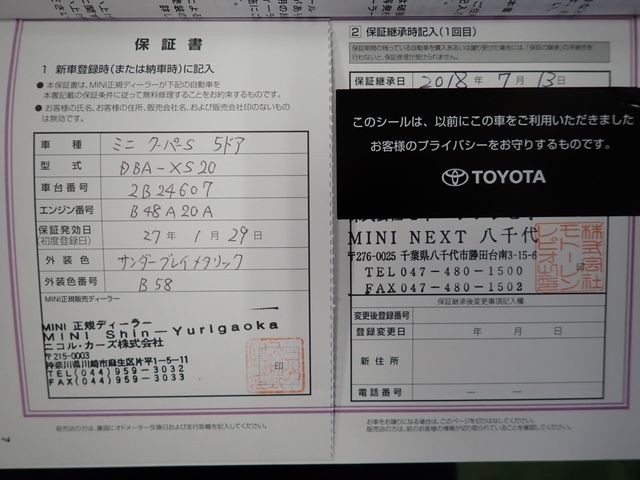 保証書
1 新車登録時(または納車時)に記入
● 本保証書は、MINI正規ディーラーが下記の自動車を
本書記載の保証条件に従って無料修理することをお約束するものです。
● お客様の氏名、お客様の住所、販売会社名、および販売会社印のないもの
は無効です。
車種 ミニ クーパーS 5ドア
型式 DBA-XS20
車台番号 2B24607
エンジン番号 B48A20A
保証発効日
(初度登録日) 27年 1月 29日
外装色 サンダーグレイメタリック
外装色番号 B58
MINI正規販売ディーラー
MINI 正規ディーラー
MINI Shin-Yurigaoka
ニコル・カーズ株式会社
〒215-0003
神奈川県川崎市麻生区片平1-5-11
TEL(044)959-3032
FAX(044)959-3033
印
販売店の方は、裏面にオドメーター交換日および走行距離を記入してください。
7
2 保証継承時記入(1回目)
保証期間の残っている自動車を購入あるいは譲り受けた場合には、「保証の継承」の手続きを
行わないと、保証修理が受けられません。
保証継承日 2018年 7月 13日
このシールは、以前にこの車をご利用いただきました
お客様のプライバシーをお守りするものです。
TOYOTA
MINI NEXT 八千代
〒276-0025 千葉県八千代市勝田台南3-15-6
TEL 047-480-1500
FAX 047-480-1502
印
保証継承後変更事項記入欄
変更後登録番号
登録変更日 年 月 日
新住所
電話番号
お車をお譲りになる場合は、このページを切りはなしてください。
販売店の方は、前のお客様の情報が切り取られていることを確認してください。